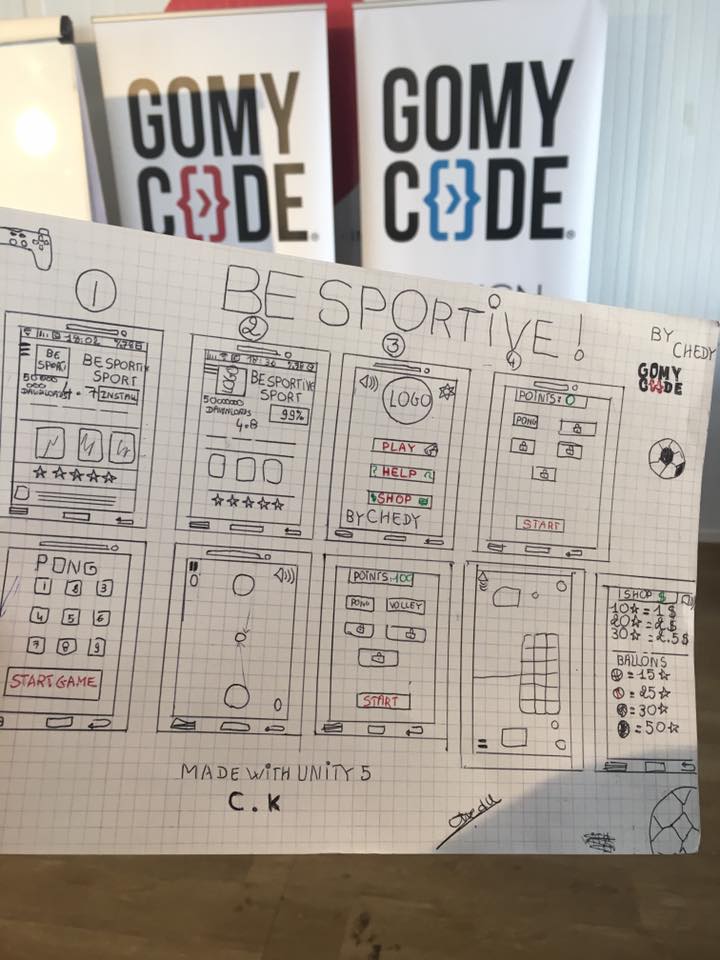 GOMY
C{>}DE
GOMY
C{>}DE
BE SPORTiVE !
BY CHEDY
GOMY
CODE
1
2
3
4
18:02
%78
BE
SPORT
BESPORTIV
SPORT
50000
000
DOWNLOADS
4.7
INSTALL
18:30
%98
BESPORTIVE
SPORT
5000000
DOWNLOADS
4.8
99%
LOGO
PLAY
? HELP ?
$ SHOP
BY CHEDY
POINTS: 0
PONG
START
PONG
1 2 3
4 5 6
7 8 9
START GAME
0
0
POINTS: 100
PONG VOLLEY
START
SHOP $
10☆ = 1 $
20☆ = 2 $
30☆ = 2.5 $
BALLONS
= 15☆
= 25☆
= 30☆
= 50☆
MADE WiTH UNITY 5
C.K